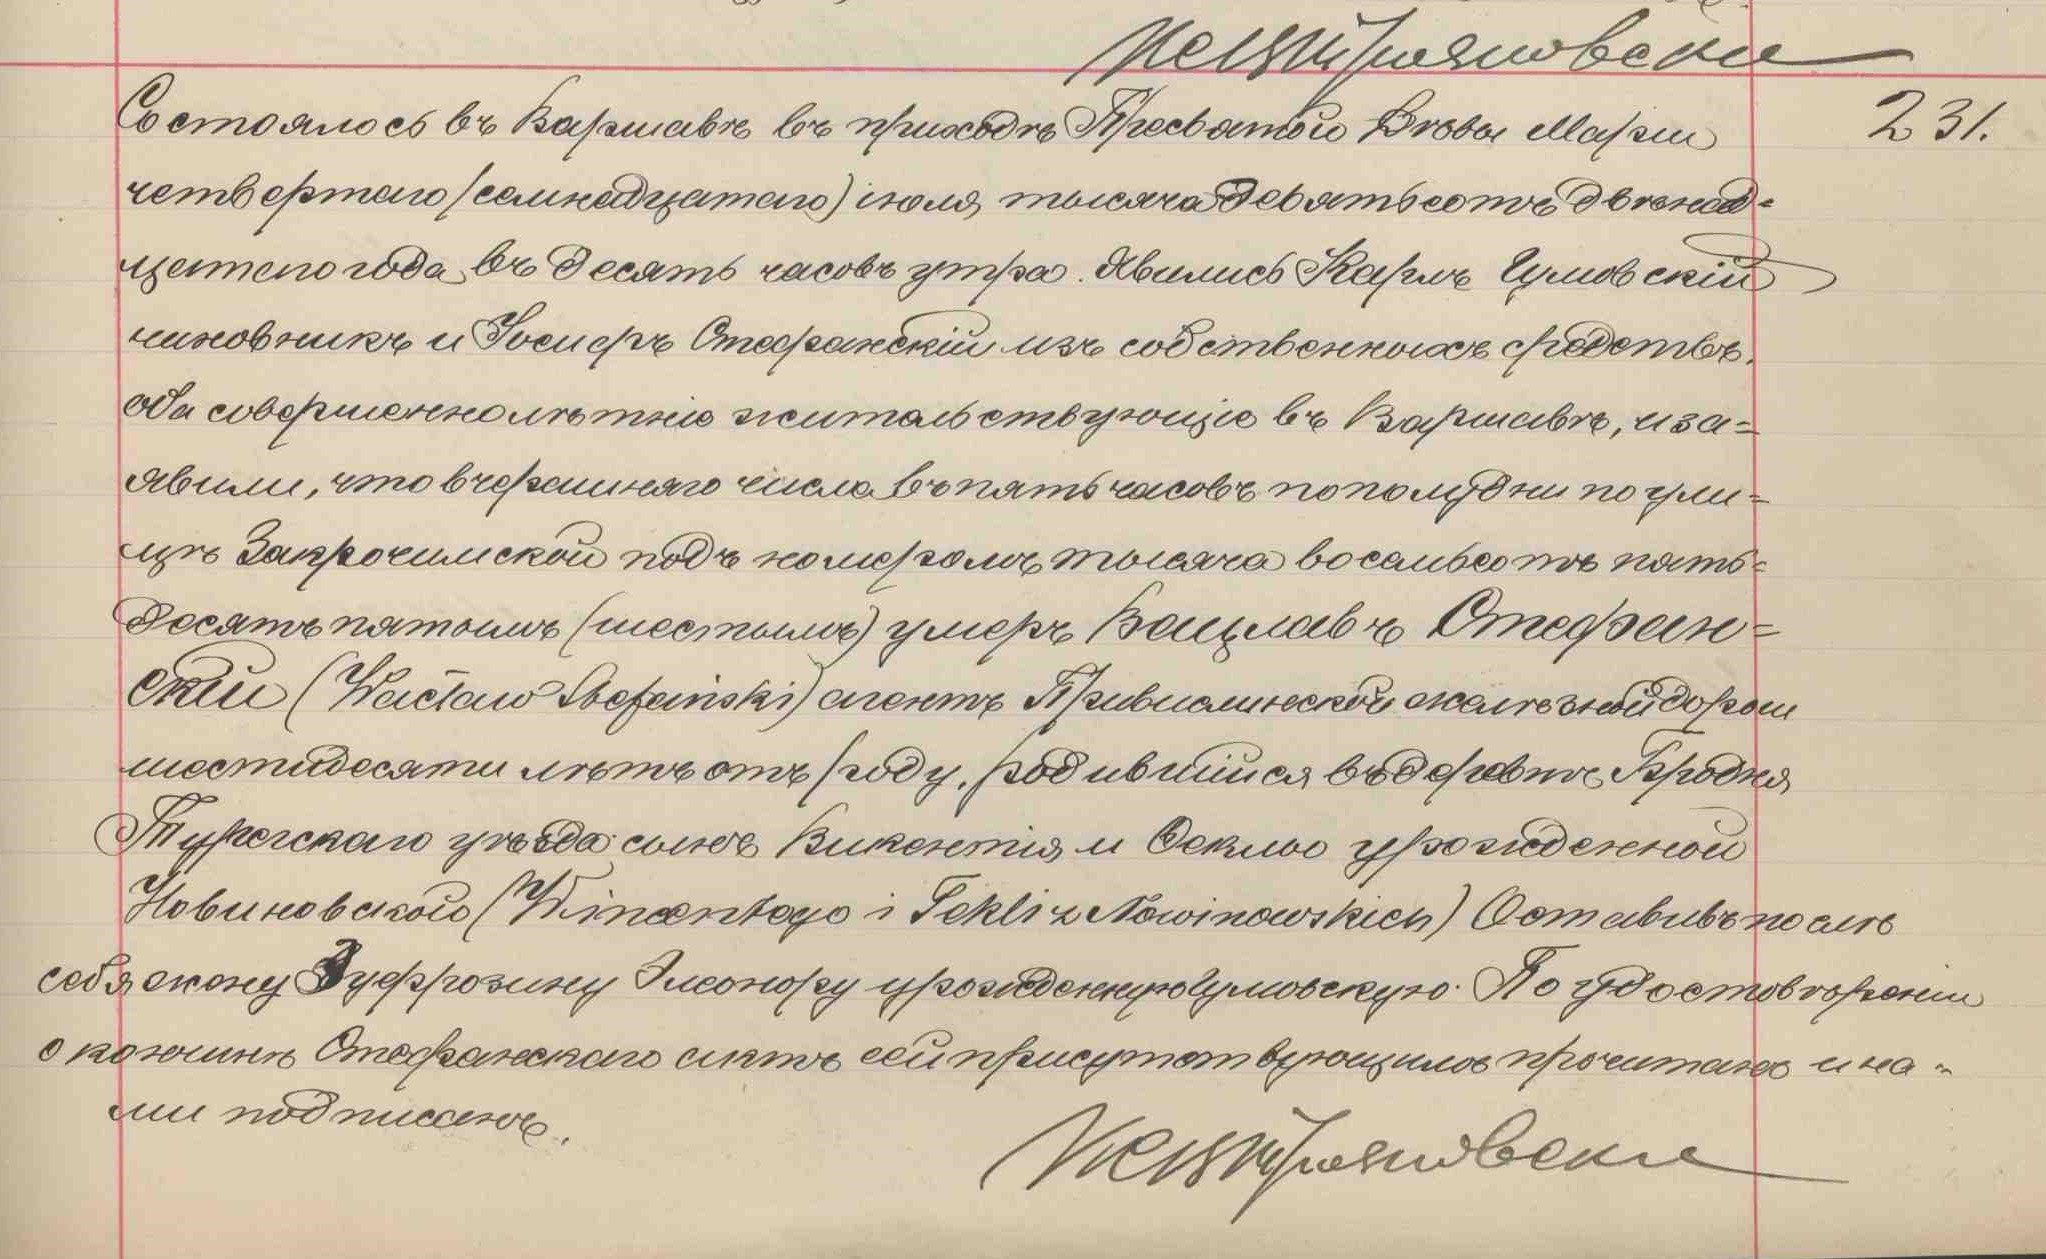 231.
Состоялось въ Варшавѣ въ приходѣ Пресвятой Дѣвы Маріи
четвертаго (семнадцатаго) іюля тысяча девятьсотъ двѣнад-
цатаго года въ десять часовъ утра. Явились Карлъ Гумовскій
чиновникъ и Іосифъ Стефанскій изъ собственныхъ средствъ,
оба совершеннолѣтніе жительствующіе въ Варшавѣ, и за-
явили, что вчерашняго числа въ пять часовъ пополудни по ули-
цѣ Закрочимской подъ номеромъ тысяча восемьсотъ пять-
десятъ пятымъ (шестымъ) умеръ Вацлавъ Стефан-
скій (Wacław Stefański) агентъ Привислинской желѣзной дороги
шестидесяти лѣтъ отъ роду, родившійся въ деревнѣ Бродня
Турекскаго уѣзда сынъ Викентія и Феклы урожденной
Новиновской (Wincentego i Tekli z Nowinowskich) Оставивъ послѣ
себя жену Эуфрозину Элеонору урожденную Гумовскую. По удостовѣреніи
о кончинѣ Стефанскаго актъ сей присутствующимъ прочитанъ и на-
ми подписанъ.